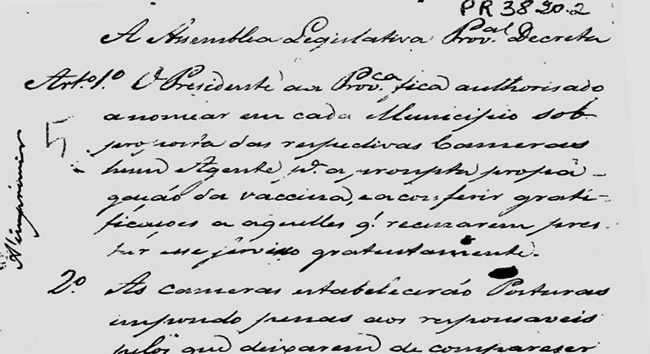 PR 38 20.2
A Assemblea Legislativa Prov.al Decreta
Art.o 1.o O Presidente da Prov.ca fica authorisado
a nomear em cada Municipio sob
proposta das respectivas Cameras
hum Agente p.a a prompta propa-
gação da vaccina, e a conferir grati-
ficacoes a aquelles q. recuzarem pres-
tar esse serviso gratuitamente.
2.o As cameras estabelecerão Posturas
impondo penas aos responsaveis
pelos que deixarem de compareser
A imprimir
5